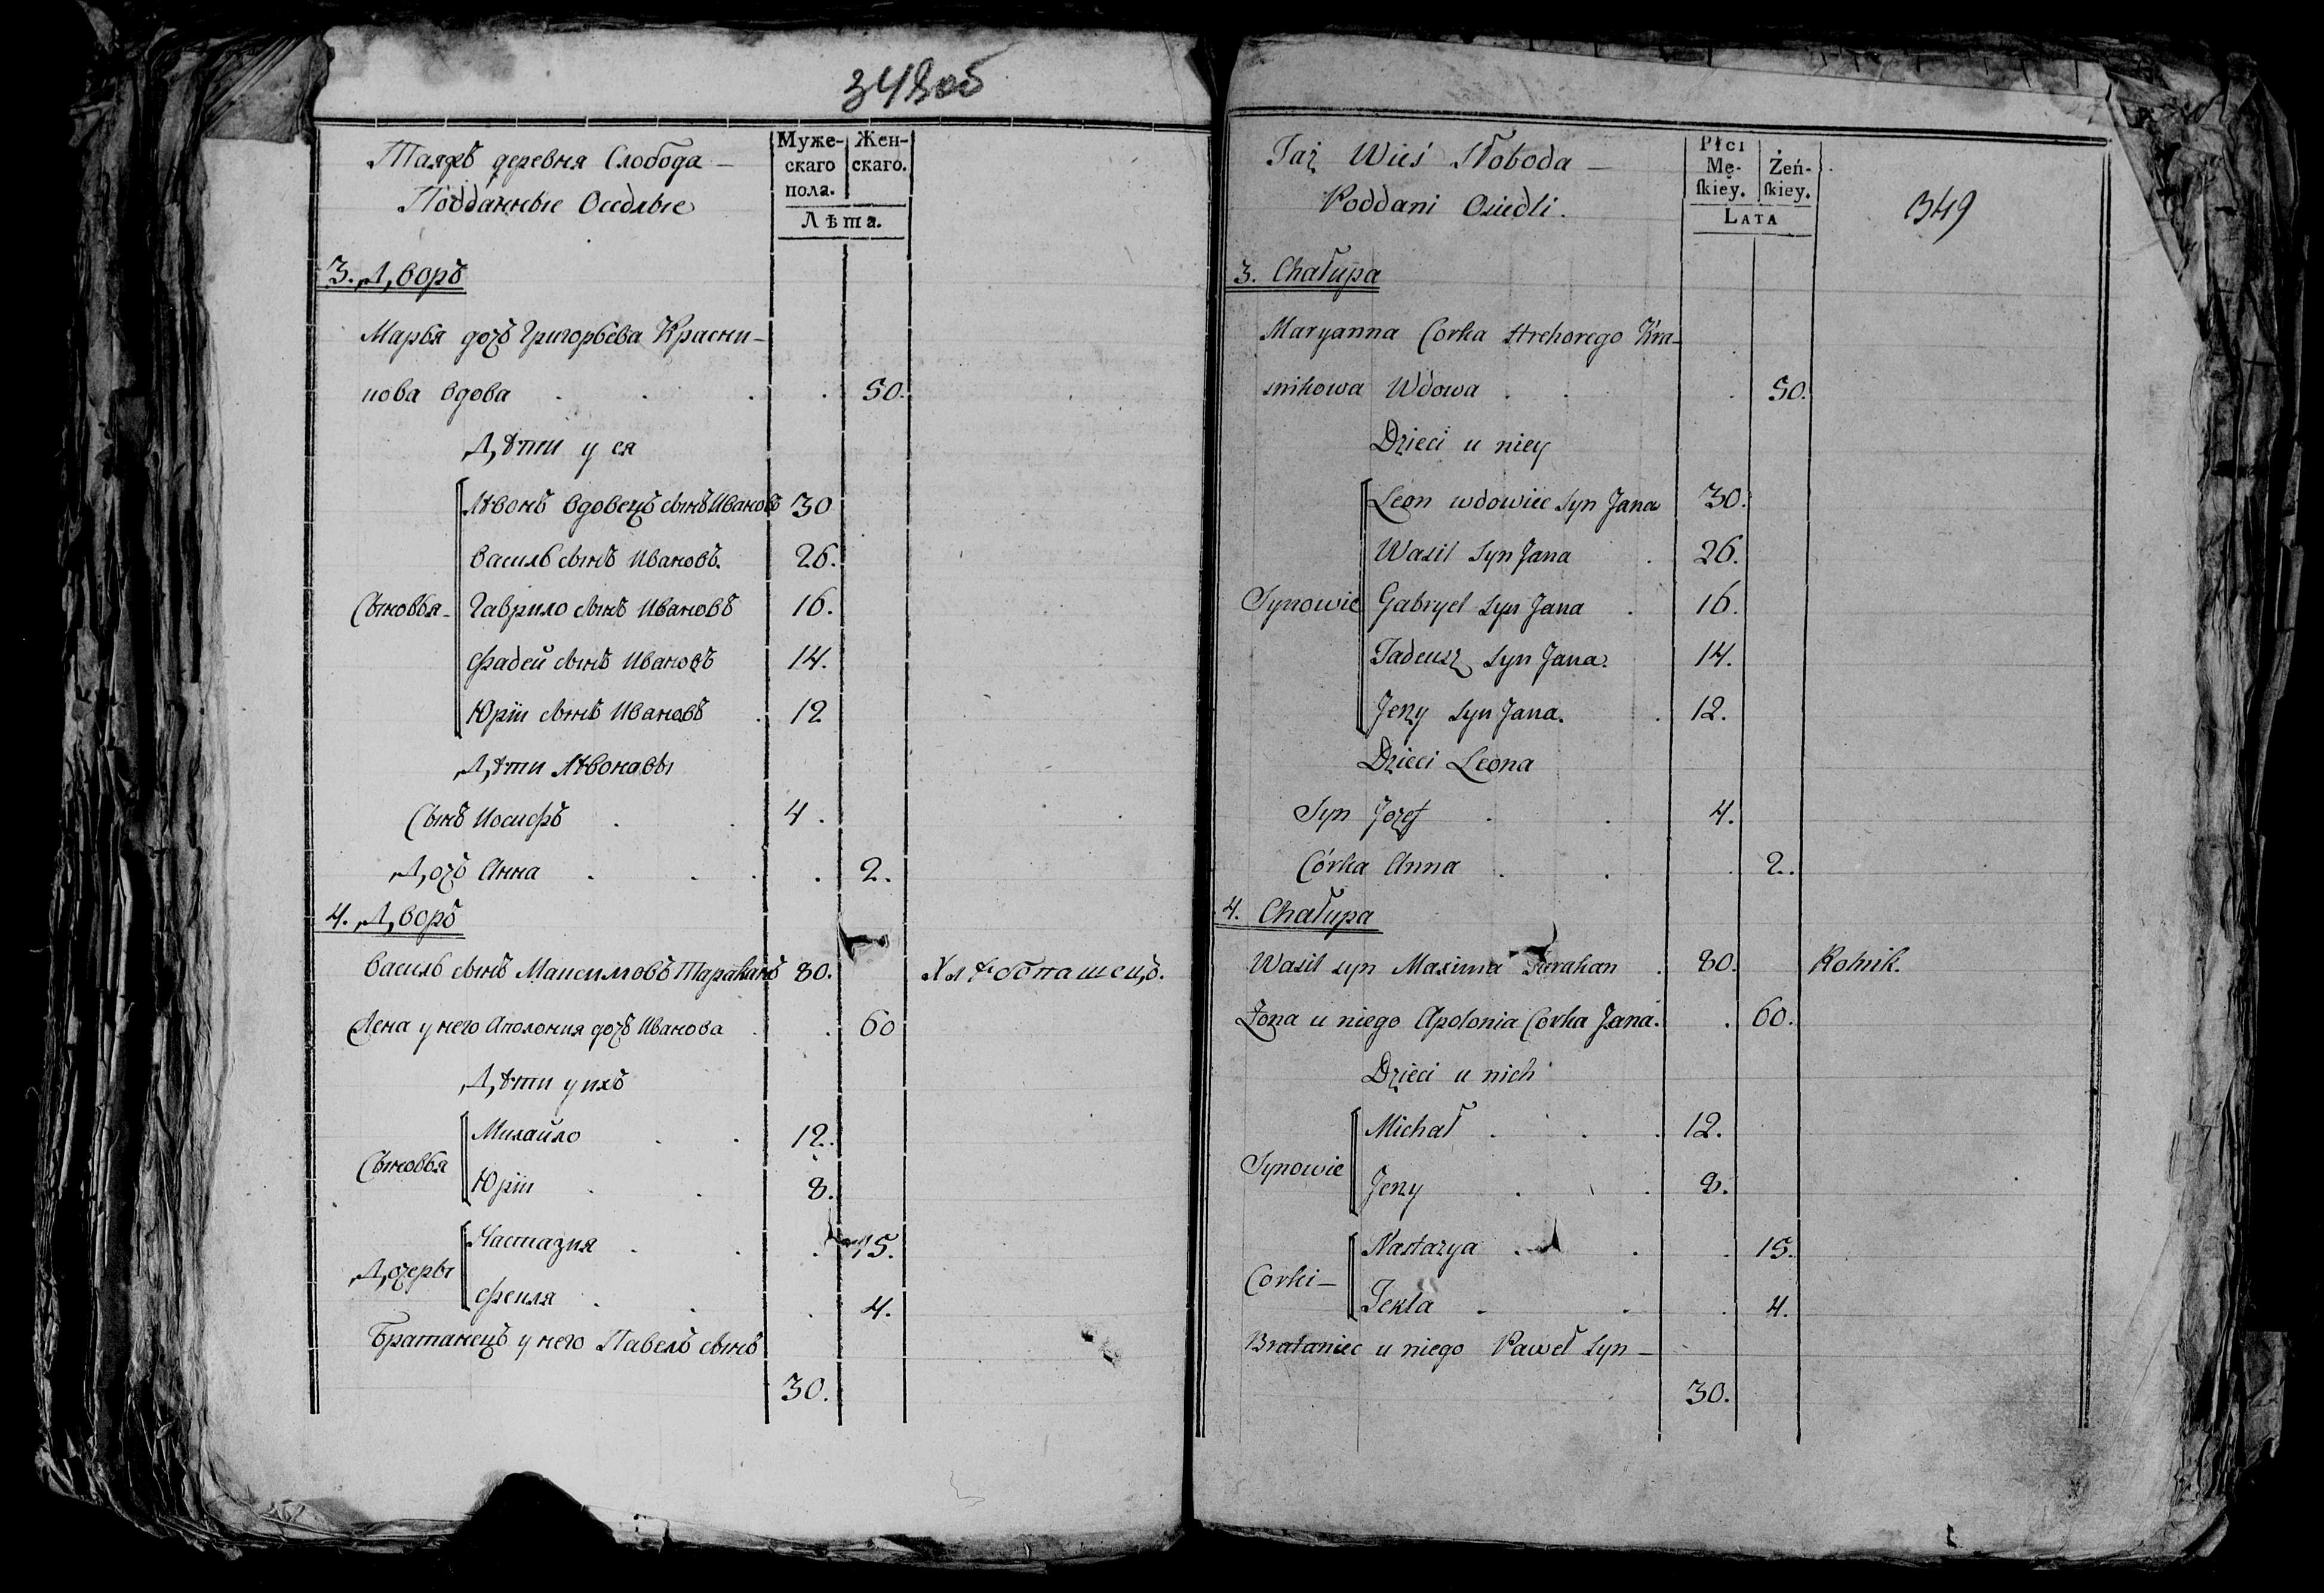 348об
Таяжъ деревня Слобода —
Подданные Оседлые
Муже- Жен-
скаго скаго.
пола.
Лѣта.
3. Дворъ
Марья дочь Григорьева Красни-
кова вдова . . . . 50.
Дѣти у ея
Лѣвонъ вдовецъ сынъ Ивановъ 30
Василь сынъ Ивановъ. 26.
Сыновья - Гаврило сынъ Ивановъ 16.
Фадей сынъ Ивановъ 14.
Юрiй сынъ Ивановъ . 12
Дѣти Лѣвонавы
Сынъ Иосифъ . . 4.
Дочь Анна . . . . 2.
4. Дворъ
Василь сынъ Максимовъ Тараканъ 80. Хлѣбопашецъ.
Жена у него Аполония дочь Иванова . . 60
Дѣти у ихъ
Михайло . . 12.
Сыновья
Юрiй . . 8.
Настазия . . . 15.
Дочеры
Фекля . . . 4.
Братанецъ у него Павелъ сынъ
30.
Taż Wieś Słoboda —
Poddani Osiedli.
Płci
Mę- Żeń-
ſkiey. ſkiey.
Lata
349
3. Chałupa
Maryanna Corka Hrehorego Kra-
snikowa Wdowa . . . 50.
Dzieci u niey
Leon wdowiec syn Jana 30.
Wasil syn Jana . 26.
Synowie Gabryel syn Jana . 16.
Tadeusz syn Jana. 14.
Jerzy syn Jana. . 12.
Dzieci Leona
Syn Jozef . . 4.
Córka Anna . . . 2.
4. Chałupa
Wasil syn Maxima Tarakan . 80. Rolnik.
Żona u niego Apolonia Corka Jana. . 60.
Dzieci u nich
Michał . . . 12.
Synowie
Jerzy . . . 8.
Nastazya . . . 15.
Corki —
Tekla . . . 4.
Brataniec u niego Paweł syn —
30.